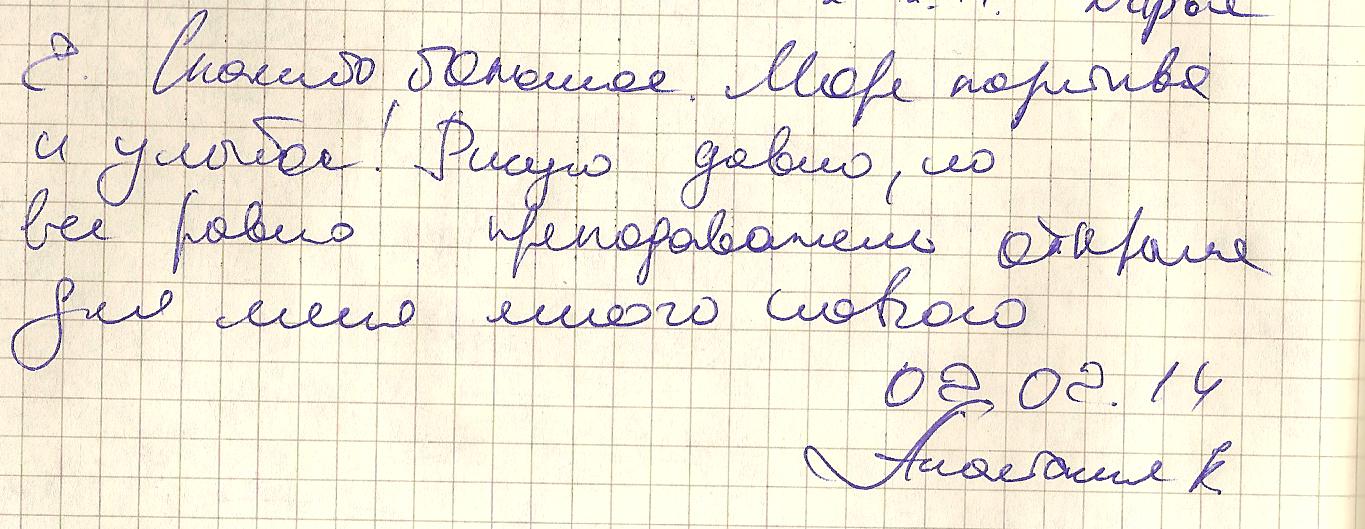 Дарья
2. Спасибо большое. Море позитива
и улыбок! Рисую давно, но
все равно преподаватель открыла
для меня много нового
02.02.14
Анастасия К